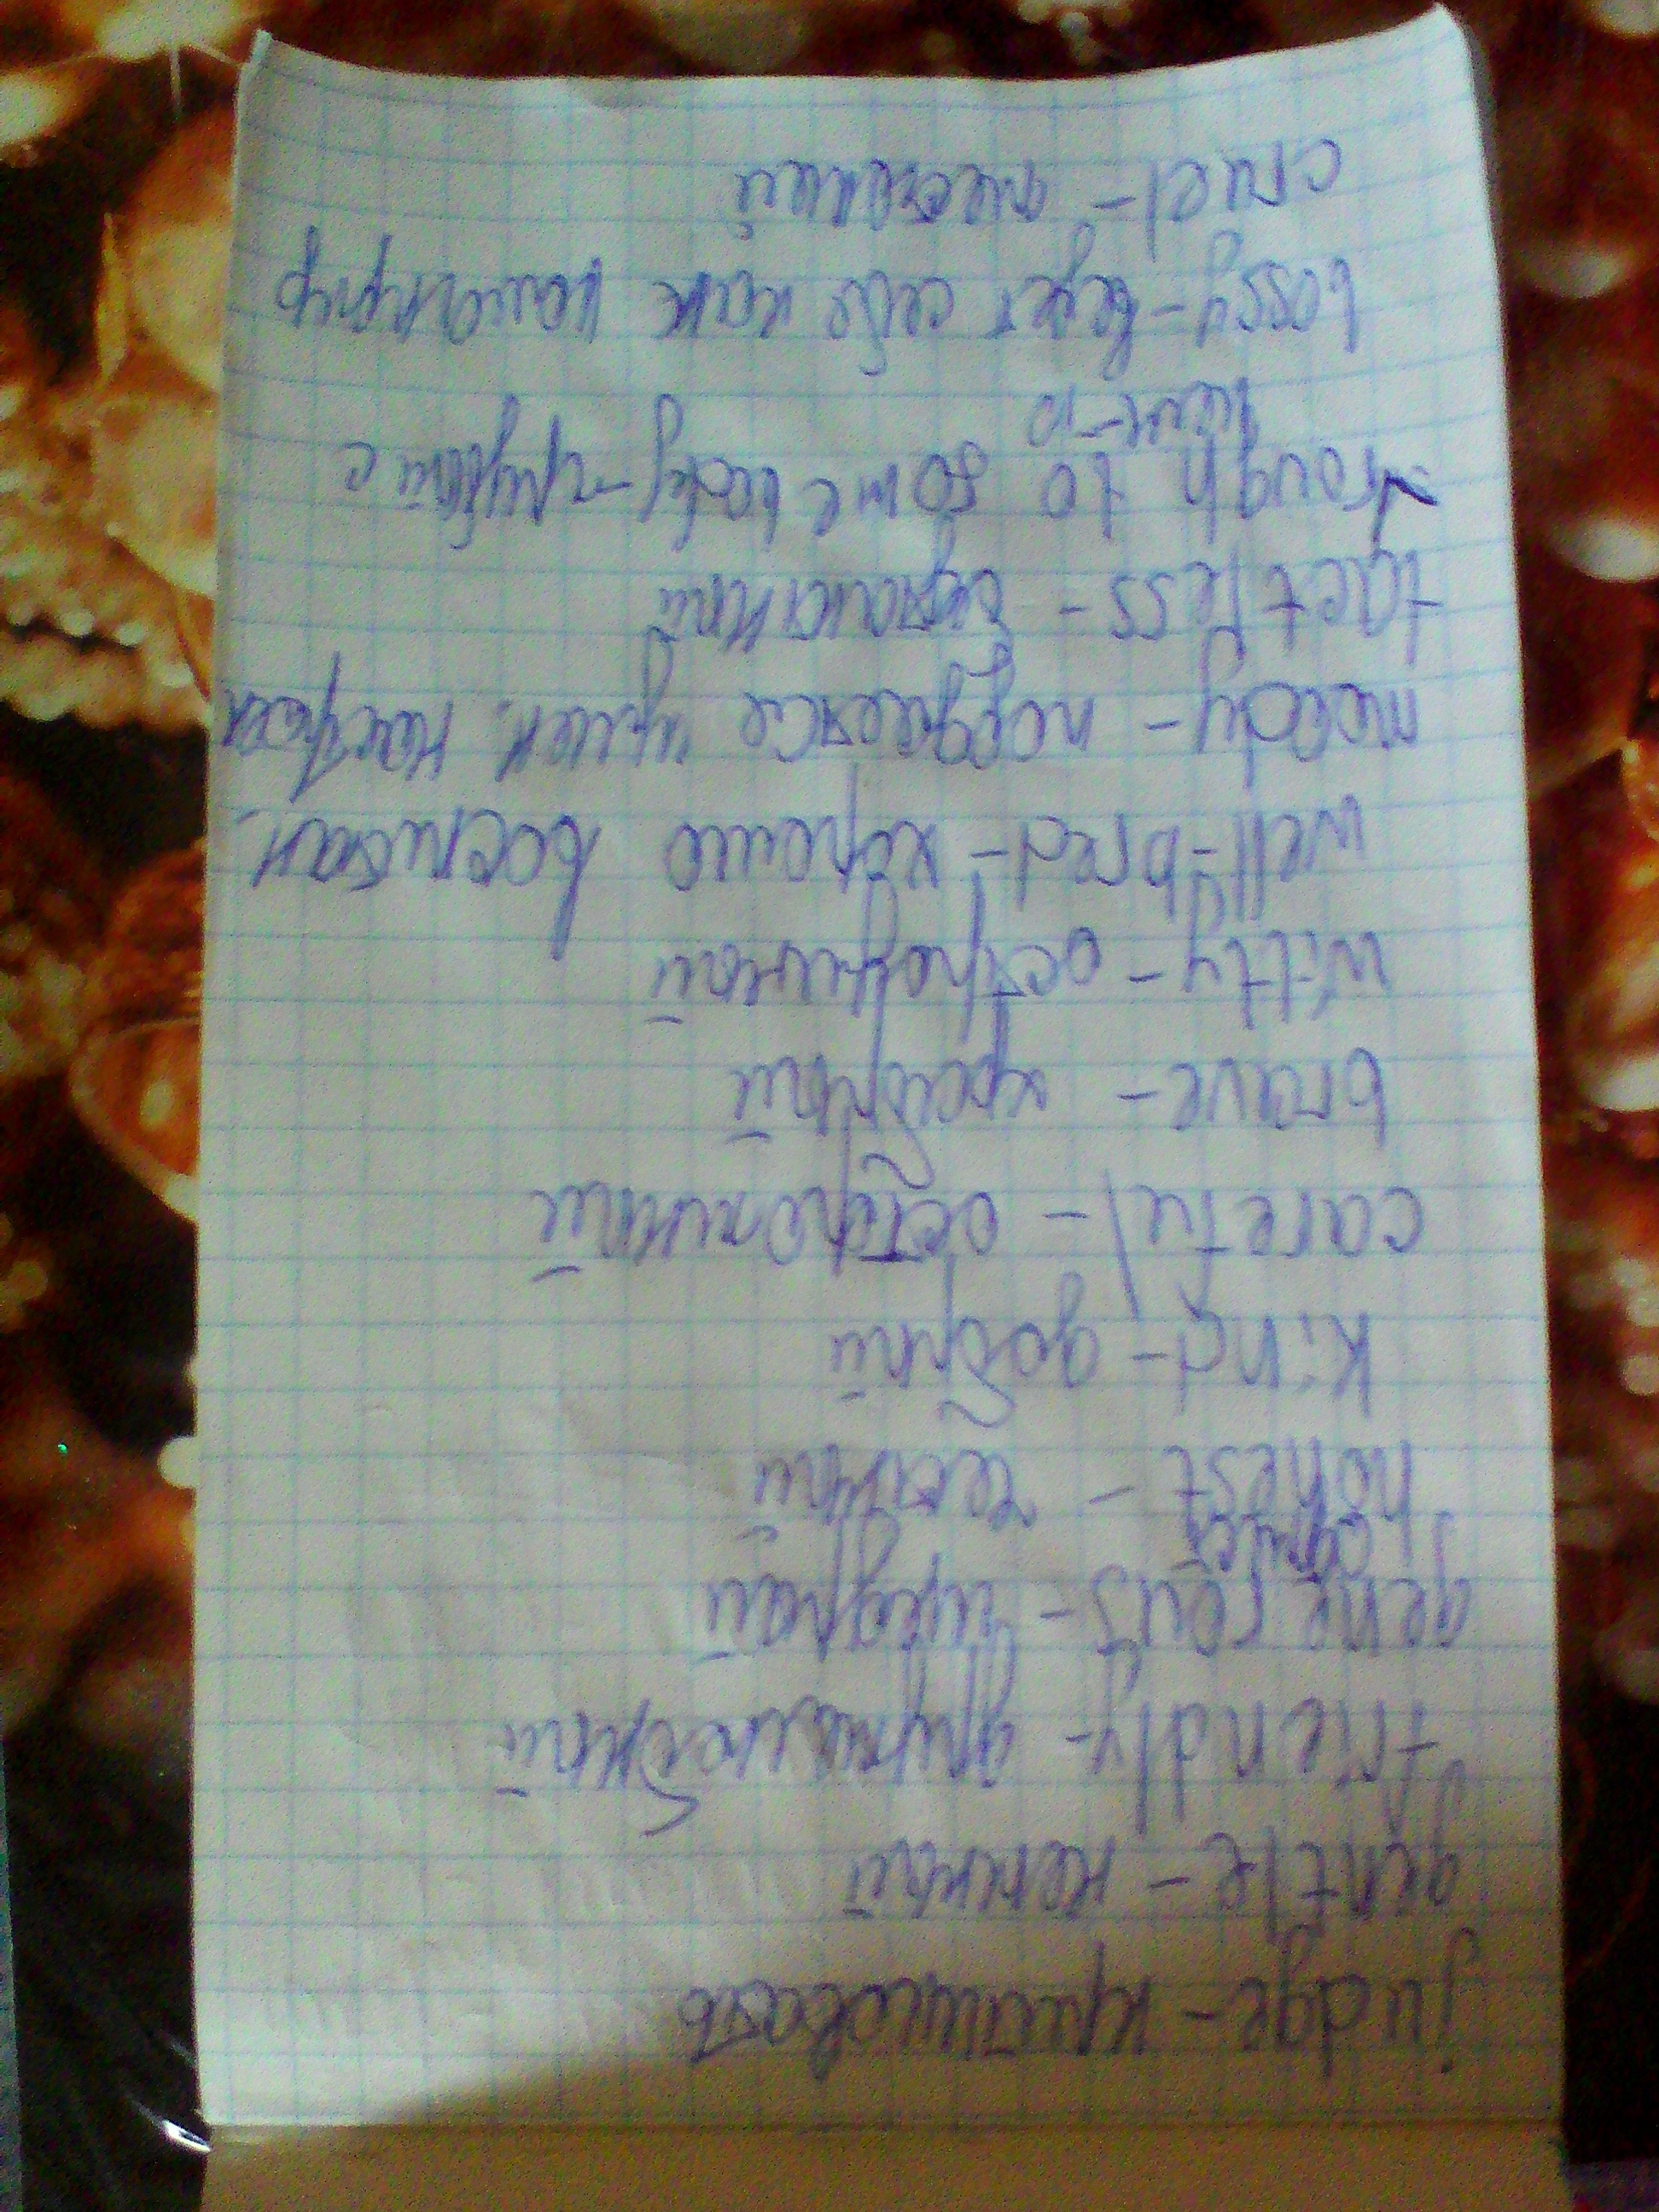 judge - критиковать
gentle - нежный
friendly - дружелюбный
generous - щедрый
honest - честный
kind - добрый
careful - осторожный
brave - храбрый
witty - остроумный
well-bred - хорошо воспитан.
moody - поддается настроен
tactless - бестактный
rough to somebody - грубый с
кем-то
bossy - ведет себя как командир
cruel - жестокий